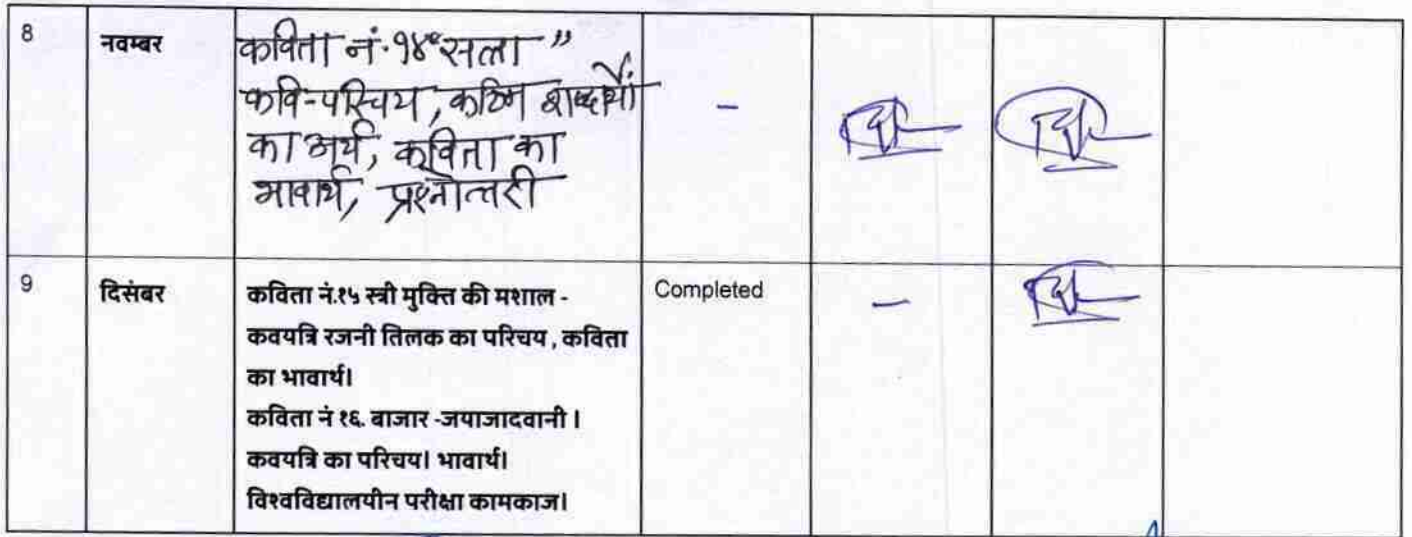 8
नवम्बर
कविता नं.१४ "सत्ता"
कवि-परिचय, कठिन शब्दार्थों
का अर्थ, कविता का
भावार्थ, प्रश्नोत्तरी
-
9
दिसंबर
कविता नं.१५ स्त्री मुक्ति की मशाल -
कवयत्रि रजनी तिलक का परिचय , कविता
का भावार्थ।
कविता नं १६. बाजार -जयाजादवानी ।
कवयत्रि का परिचय। भावार्थ।
विश्वविद्यालयीन परीक्षा कामकाज।
Completed
-